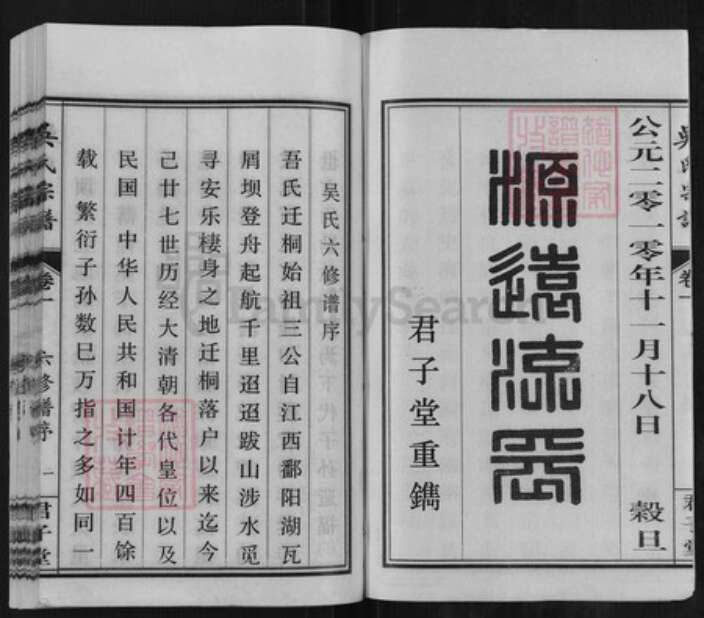 公元二零一零年十一月十八日 穀旦
源遠流長
君子堂重鐫
君子堂
吴氏六修谱序
吾氏迁桐始祖三公自江西鄱阳湖瓦
屑坝登舟起航千里迢迢跋山涉水觅
寻安乐棲身之地迁桐落户以来迄今
己廿七世历经大清朝各代皇位以及
民国 中华人民共和国计年四百馀
载繁衍子孙数巳万指之多如同一
吳氏宗譜 卷一 六修譜序 一 君子堂
FamilySearch